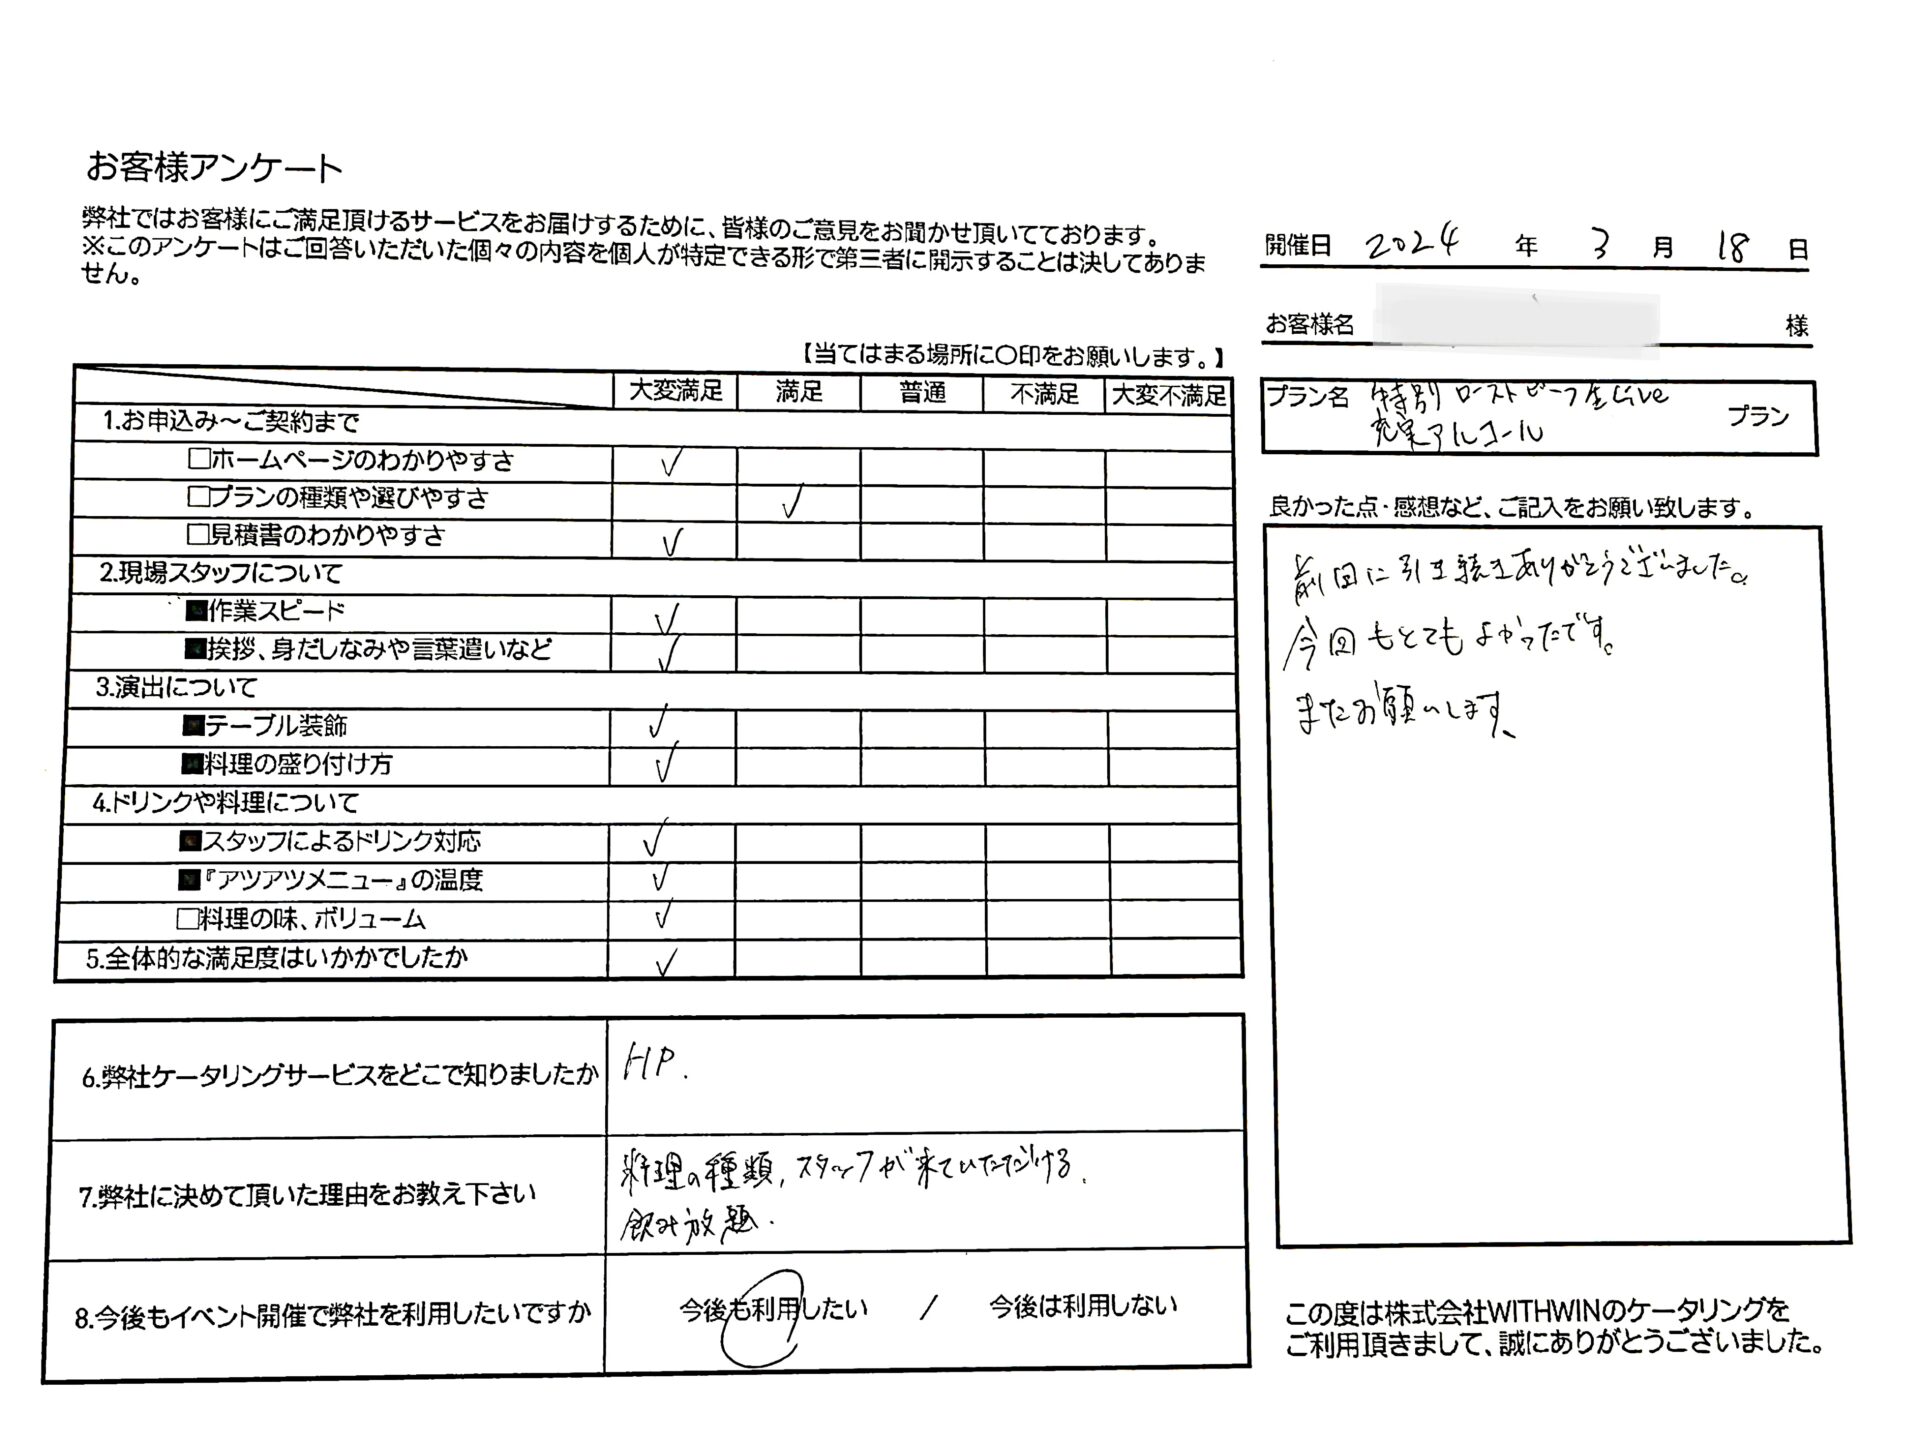 お客様アンケート
弊社ではお客様にご満足頂けるサービスをお届けするために、皆様のご意見をお聞かせ頂いてております。
※このアンケートはご回答いただいた個々の内容を個人が特定できる形で第三者に開示することは決してありま
せん。
開催日 2024 年 3 月 18 日
お客様名 様
【当てはまる場所に〇印をお願いします。】
プラン名 特別 ローストビーフ生Live
充実アルコール
プラン
大変満足 満足 普通 不満足 大変不満足
1.お申込み～ご契約まで
□ホームページのわかりやすさ ✓
□プランの種類や選びやすさ ✓
□見積書のわかりやすさ ✓
2.現場スタッフについて
■作業スピード ✓
■挨拶、身だしなみや言葉遣いなど ✓
3.演出について
■テーブル装飾 ✓
■料理の盛り付け方 ✓
4.ドリンクや料理について
■スタッフによるドリンク対応 ✓
■『アツアツメニュー』の温度 ✓
□料理の味、ボリューム ✓
5.全体的な満足度はいかかでしたか ✓
良かった点・感想など、ご記入をお願い致します。
前回に引き続きありがとうございました。
今回もとてもよかったです。
またお願いします、
6.弊社ケータリングサービスをどこで知りましたか HP.
7.弊社に決めて頂いた理由をお教え下さい
料理の種類, スタッフが来ていただける.
飲み放題.
8.今後もイベント開催で弊社を利用したいですか 今後も利用したい / 今後は利用しない
この度は株式会社WITHWINのケータリングを
ご利用頂きまして、誠にありがとうございました。